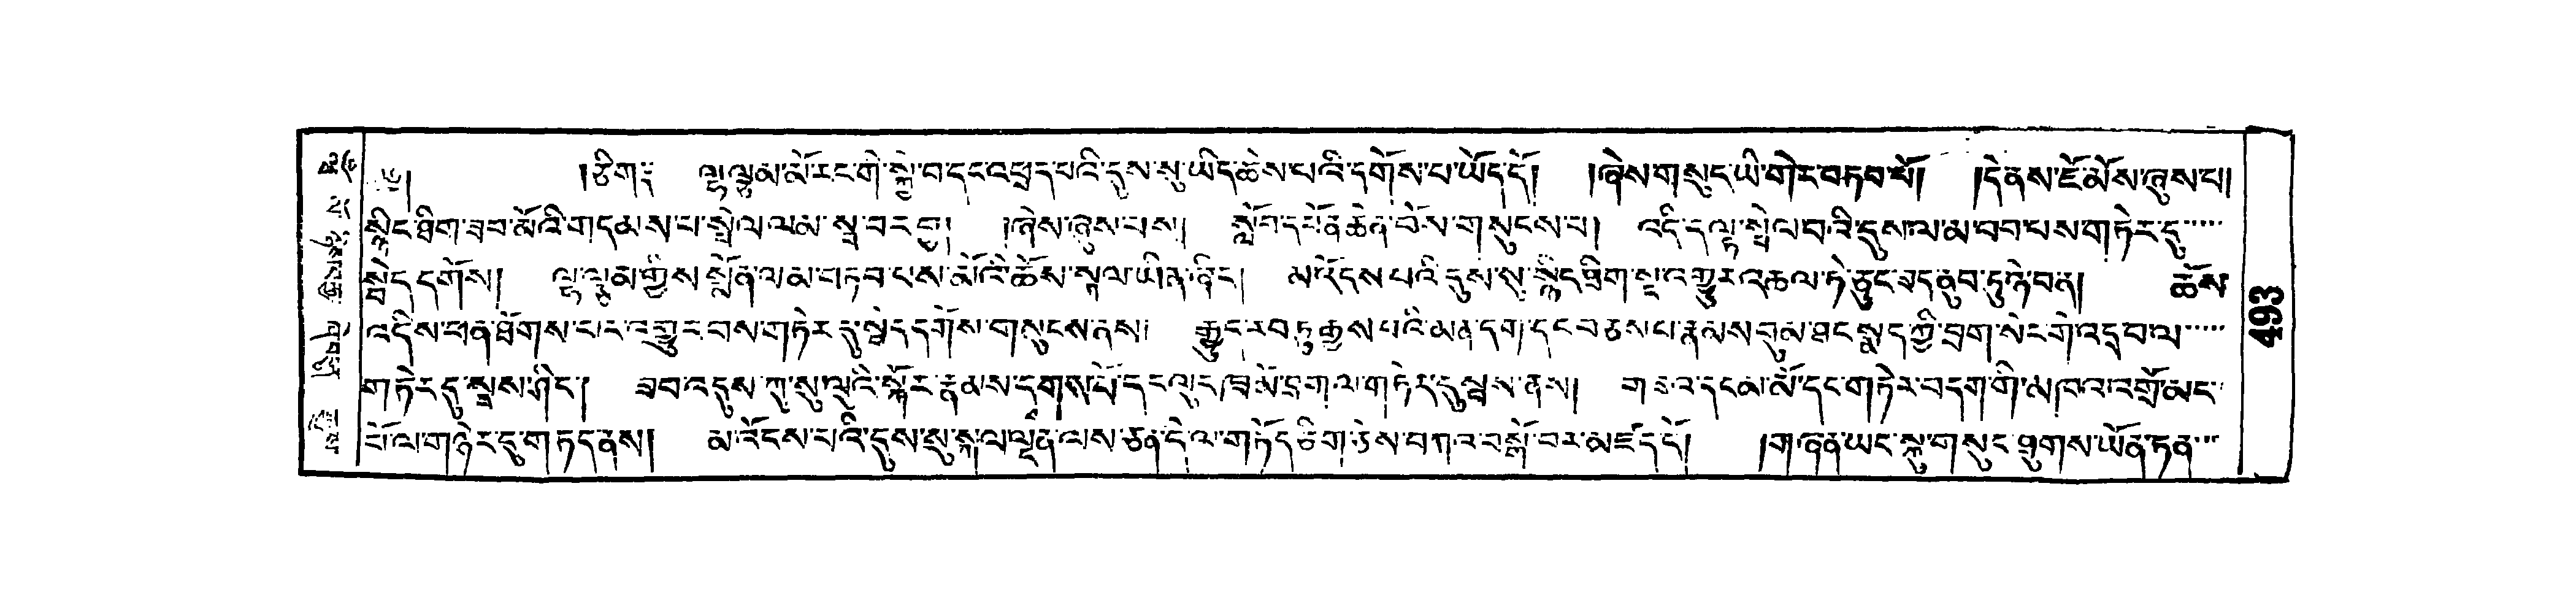 །ཅིག༔ ལྷ་ལྕམ་མོ་རང་གི་སྐྱེ་བ་དང་འཕྲད་པའི་དུས་སུ་ཡིད་ཆེས་པའི་དགོས་པ་ཡོད་དོ། །ཞེས་གསུང་ཡི་གེར་བཏབ་པོ། །དེ་ནས་ཇོ་མོས་ཞུས་པ།
སྙིང་ཐིག་ཟབ་མོའི་གདམས་པ་སྤེལ་ལམ་སྦ་བར་བྱ། །ཞེས་ཞུས་པས། སློབ་དཔོན་ཆེན་པོས་གསུངས་པ། འདི་ད་ལྟ་སྤེལ་བའི་དུས་ལ་མ་བབ་པས་གཏེར་དུ
སྦེད་དགོས། ལྷ་ལྕམ་གྱིས་སྨོན་ལམ་བཏབ་པས་མོའི་ཆོས་སྐལ་ཡིན་ཞིང། མ་འོངས་པའི་དུས་སུ་སྙིང་ཐིག་སྔ་འགྱུར་འཆལ་ཏེ་ནུང་ཟད་ནུབ་ཏུ་ཉེ་བན། ཆོས
འདིས་ཕན་ཐོགས་པར་འགྱུར་བས་གཏེར་དུ་སྦེད་དགོས་གསུངས་ནས། རྒྱུད་རབ་ཏུ་རྒྱས་པའི་མན་དག་དང་བཅས་པ་རྣམས་བུམ་ཐང་སྨད་ཀྱི་བྲག་སེང་གེ་འདྲ་བ་ལ
གཏེར་དུ་སྦས་ཤིང། ཟབ་འདུས་ཀུ་སུ་ལུའི་སྐོར་རྣམས་དྭགས་པོ་དང་ལུང་ཁྲ་མོ་བྲག་ལ་གཏེར་དུ་སྦས་ནས། གཟའ་དང་མ་མོ་དང་གཏེར་བདག་གི་མཁའ་འགྲོ་མང
པོ་ལ་གཉེར་དུ་གཏད་ནས། མ་འོངས་པའི་དུས་སུ་སྐལ་ལྡན་ལས་ཅན་དེ་ལ་གཏོད་ཅིག་ཅེས་བཀའ་བསྒོ་བར་མཛད་དོ། །གཞན་ཡང་སྐུ་གསུང་ཐུགས་ཡོན་ཏན
493